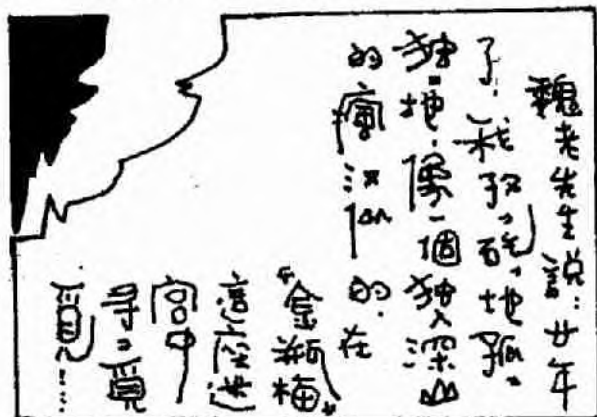 魏老先生說：廿年
了，我孜々矻々地孤々
獨々地，像一個獨入深山
的瘋漢似的，在
“金瓶梅”
這座迷
宮中
尋々覓
覓……